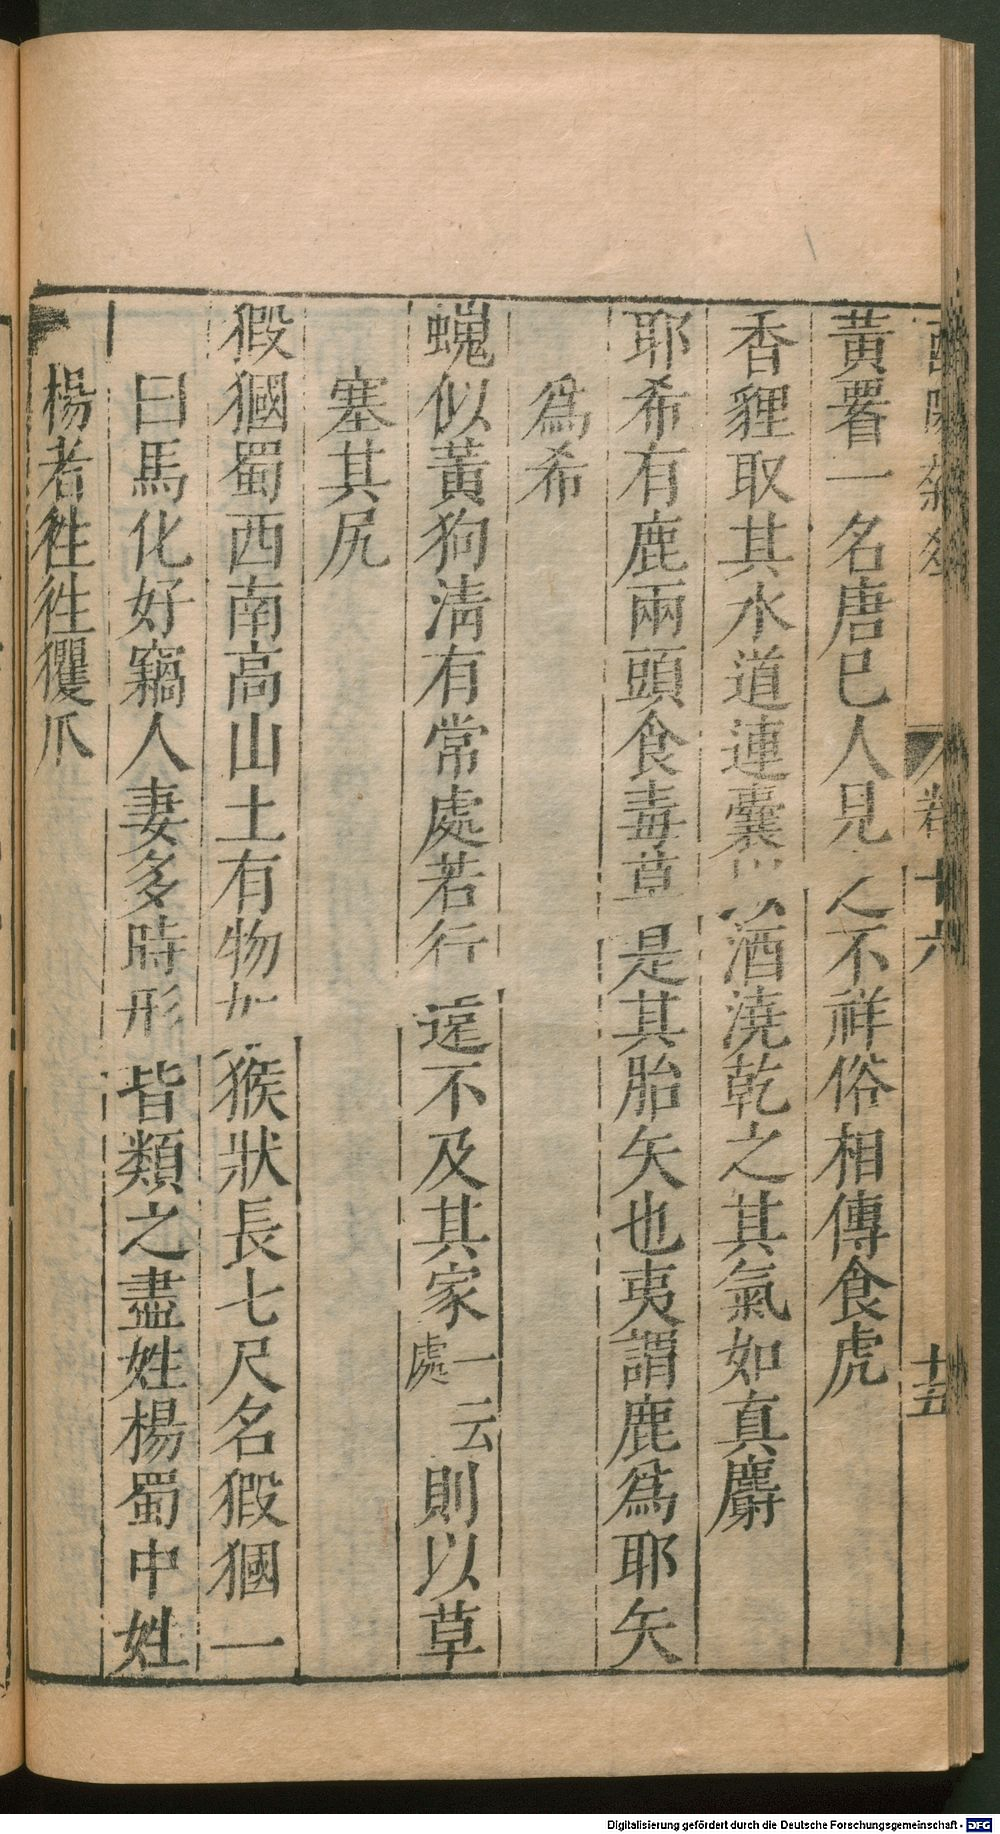 酉陽雜俎 卷十六 十五
黃䍜一名唐巳人見之不祥俗相傳食虎
香貍取其水道連囊以酒澆乾之其氣如真麝
耶希有鹿兩頭食毒草是其胎矢也夷謂鹿爲耶矢
爲希
䗥似黃狗淸有常處若行遠不及其家一云處則以草
塞其尻
猳𤟇蜀西南高山土有物如猴狀長七尺名猳𤟇一
曰馬化好竊人妻多時形皆類之盡姓楊蜀中姓
楊者徃徃玃爪
Digitalisierung gefördert durch die Deutsche Forschungsgemeinschaft - DFG